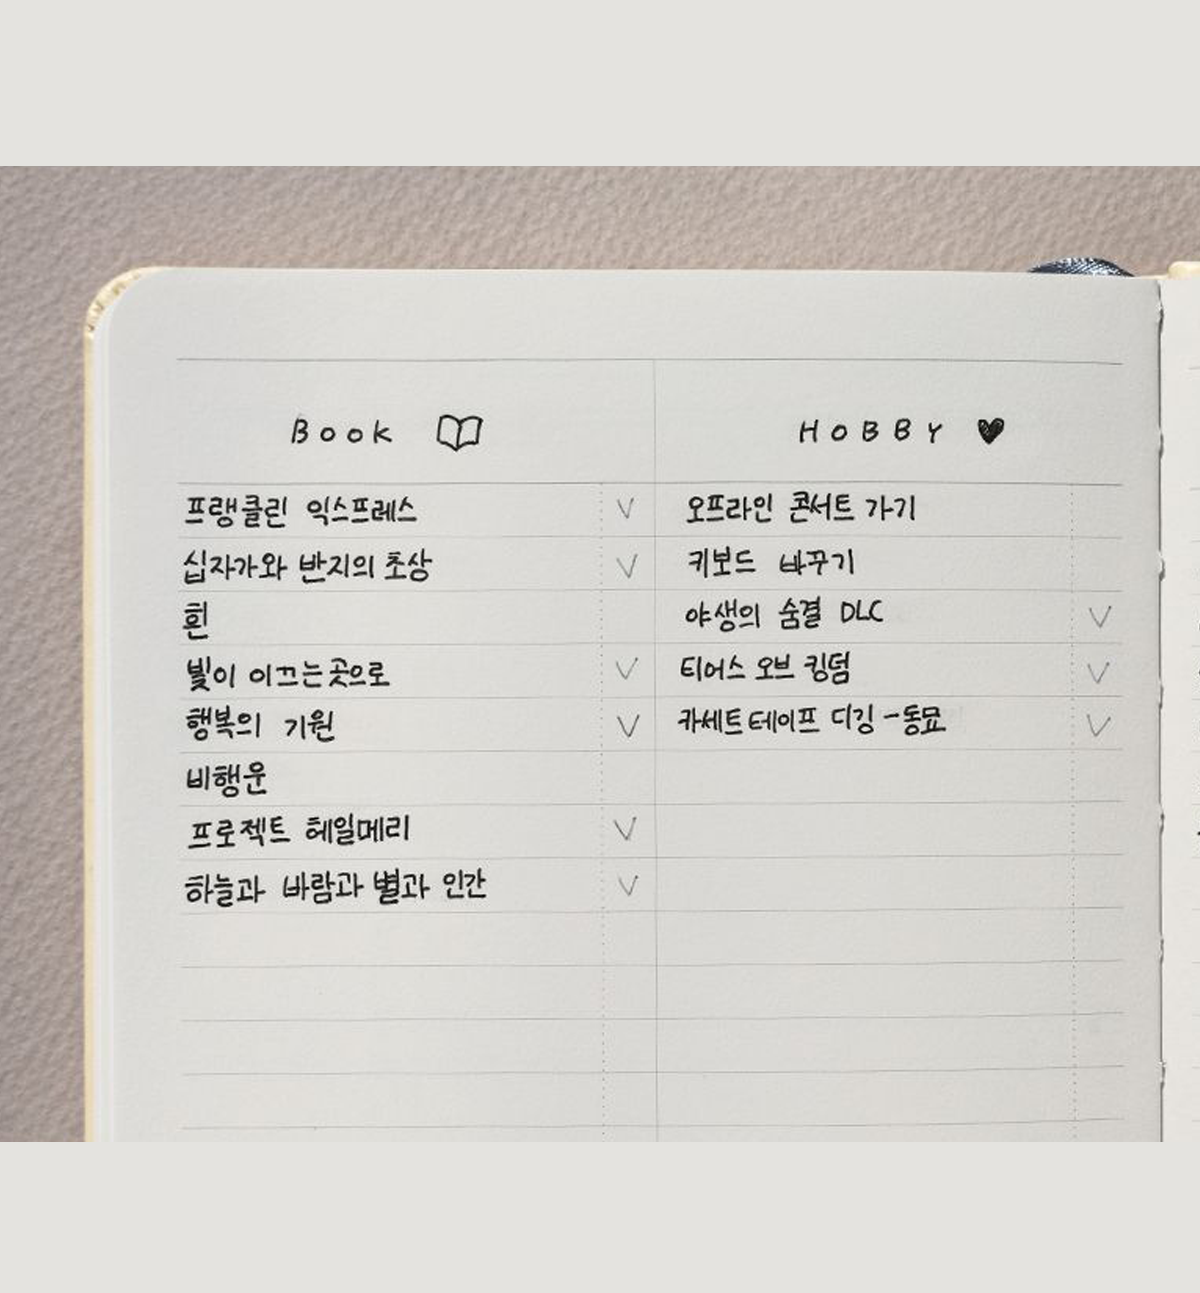 Book
프랭클린 익스프레스 V
십자가와 반지의 초상 V
흰
빛이 이끄는 곳으로 V
행복의 기원 V
비행운
프로젝트 헤일메리 V
하늘과 바람과 별과 인간 V
HOBBY
오프라인 콘서트 가기
키보드 바꾸기
야생의 숨결 DLC V
티어스 오브 킹덤 V
카세트테이프 디깅 - 동묘 V